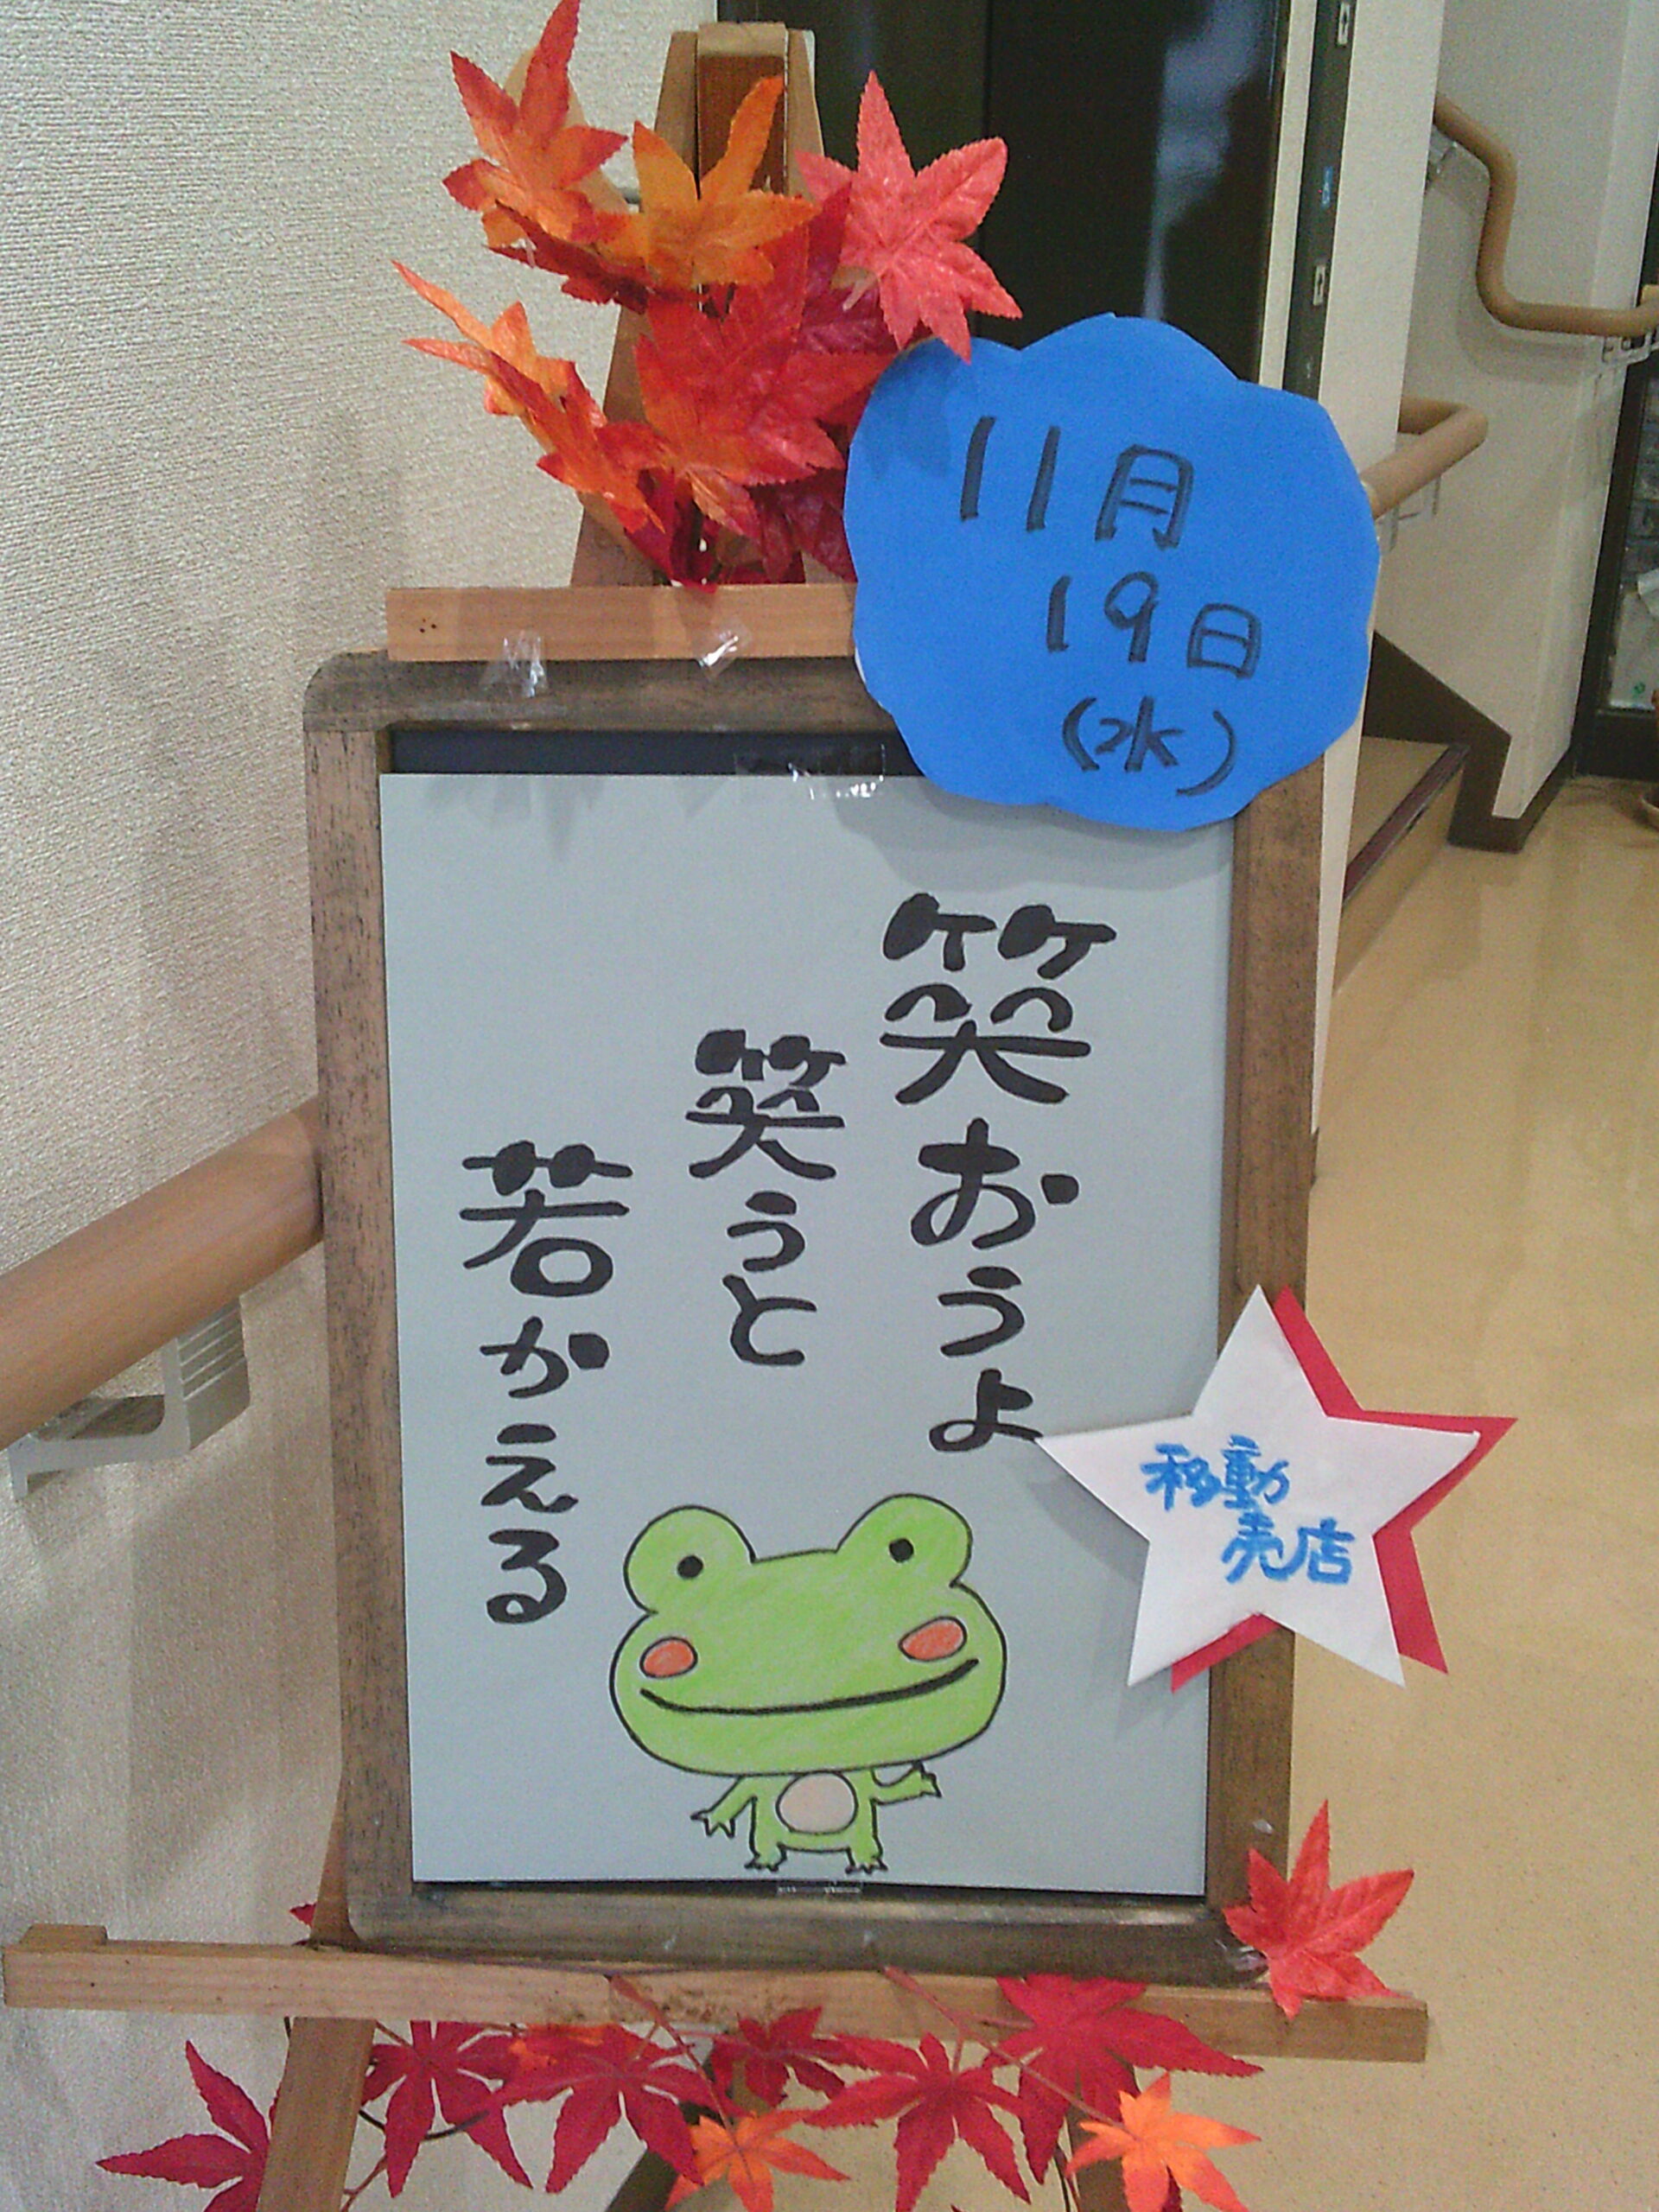 11月
19日
(水)
笑おうよ
笑うと
若かえる
移動
売店